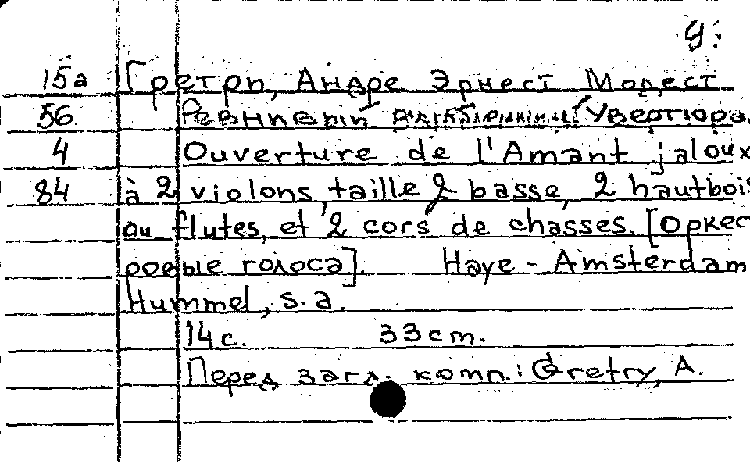 У:
15а Гретри, Андре Эрнест Модест
56 Ревнивый возлюбленный. Увертюра.
4 Ouverture de l'Amant jaloux
84 à 2 violons, taille 2 basse, 2 hautbois
ou flutes, et 2 cors de chasses. [Оркес
ровые голоса]. Haye - Amsterdam
Hummel, s.a.
14 с. 33 cm.
Перед загл. комп.: Gretry, A.